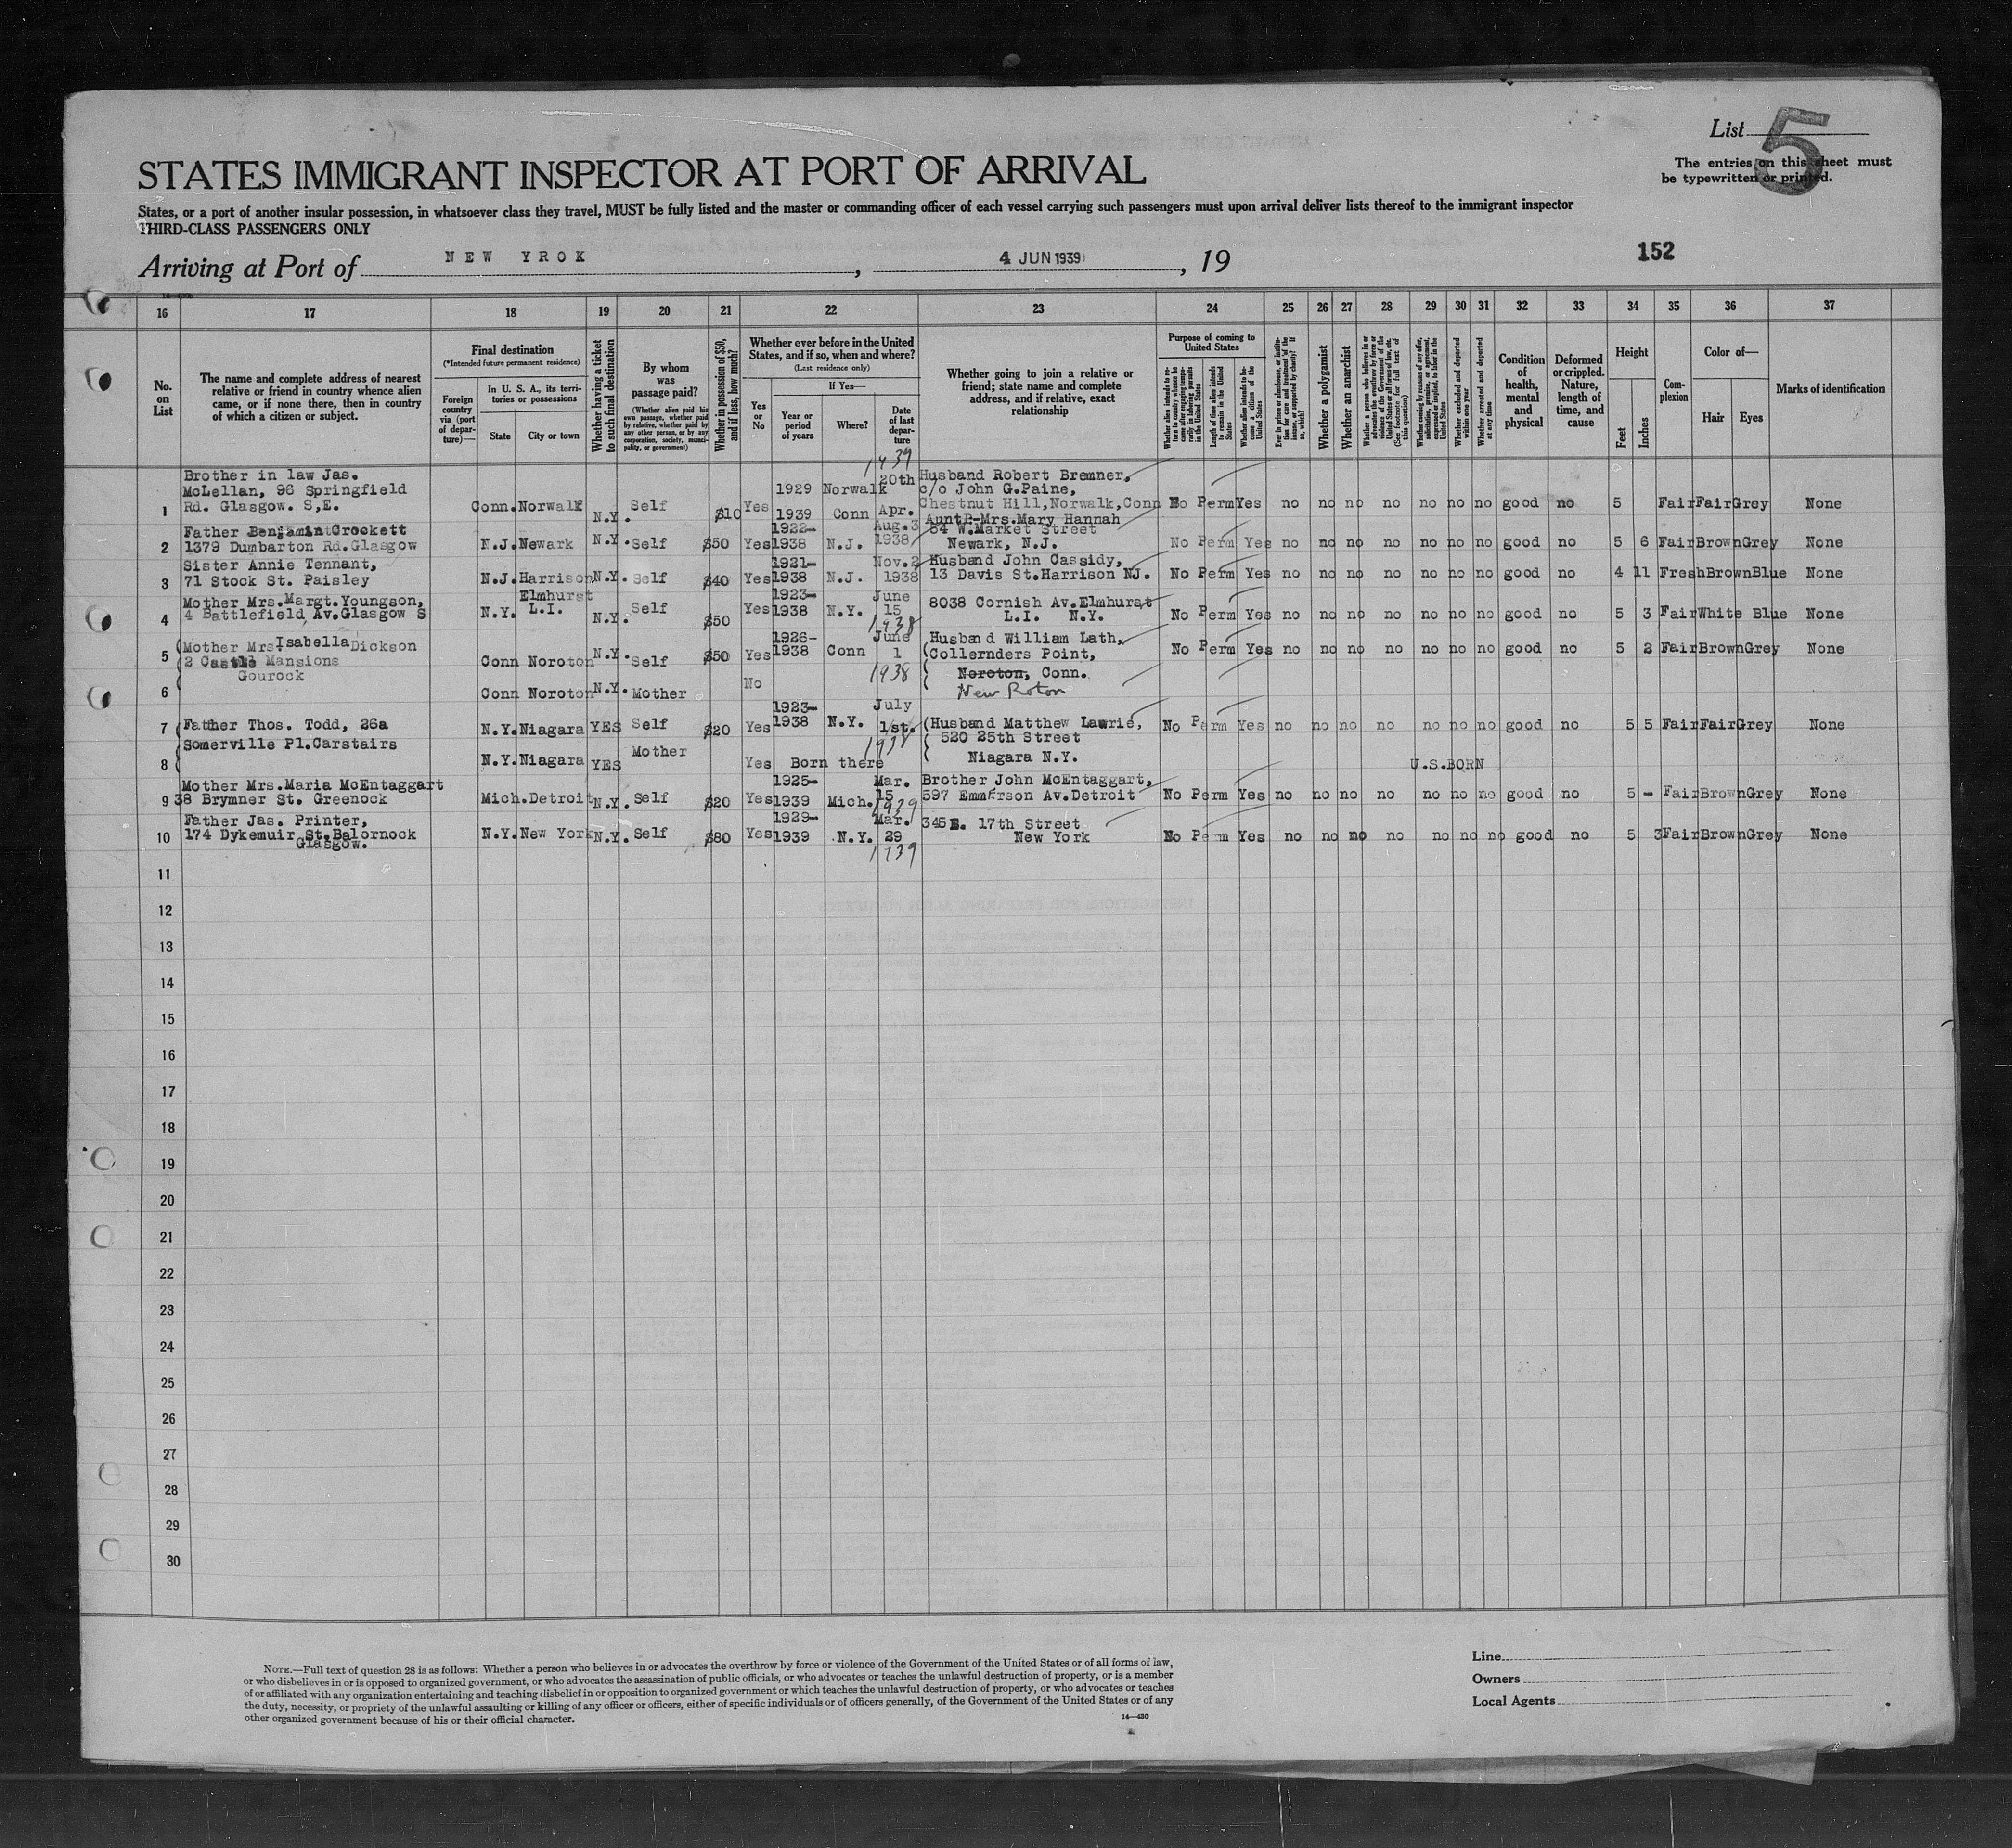 List 5
The entries on this sheet must
be typewritten or printed.
STATES IMMIGRANT INSPECTOR AT PORT OF ARRIVAL
States, or a port of another insular possession, in whatsoever class they travel, MUST be fully listed and the master or commanding officer of each vessel carrying such passengers must upon arrival deliver lists thereof to the immigrant inspector
THIRD-CLASS PASSENGERS ONLY
152
Arriving at Port of NEW YROK, 4 JUN 1939, 19
16 17 18 19 20 21 22 23 24 25 26 27 28 29 30 31 32 33 34 35 36 37
No. on List
The name and complete address of nearest
relative or friend in country whence alien
came, or if none there, then in country
of which a citizen or subject.
Final destination
(*Intended future permanent residence)
Foreign country via (port of departure)—
In U. S. A., its territories or possessions
State
City or town
Whether having a ticket to such final destination
By whom was passage paid?
(Whether alien paid his own passage, whether paid by relative, whether paid by any other person, or by any corporation, society, municipality, or government)
Whether in possession of $50, and if less, how much?
Whether ever before in the United
States, and if so, when and where?
(Last residence only)
Yes or No
If Yes—
Year or period of years
Where?
Date of last departure
Whether going to join a relative or
friend; state name and complete
address, and if relative, exact
relationship
Purpose of coming to United States
Length of time alien intends to remain in the United States
Whether alien intends to become a citizen of the United States
Whether a polygamist
Whether an anarchist
Whether excluded and deported within one year
Whether arrested and deported at any time
Condition of health, mental and physical
Deformed or crippled. Nature, length of time, and cause
Height
Feet
Inches
Complexion
Color of—
Hair
Eyes
Marks of identification
1939
1 Brother in law Jas. McLellan, 96 Springfield Rd. Glasgow. S,E. Conn. Norwalk N.Y. Self $10 Yes 1929 1939 Norwalk Conn 20th Apr. Husband Robert Bremner, c/o John G.Paine, Chestnut Hill,Norwalk,Conn No Perm Yes no no no no no no no good no 5 Fair Fair Grey None
2 Father Benjamin Crockett 1379 Dumbarton Rd.Glasgow N.J. Newark N.Y. Self $50 Yes 1922-1938 N.J. Aug.3 1938 Aunt Mrs.Mary Hannah 84 W.Market Street Newark, N.J. No Perm Yes no no no no no no no good no 5 6 Fair Brown Grey None
3 Sister Annie Tennant, 71 Stock St. Paisley N.J. Harrison N.Y. Self $40 Yes 1921-1938 N.J. Nov.2 1938 Husband John Cassidy, 13 Davis St.Harrison NJ. No Perm Yes no no no no no no no good no 4 11 Fresh Brown Blue None
4 Mother Mrs.Margt.Youngson, 4 Battlefield Av.Glasgow S N.Y. Elmhurst L.I. N.Y. Self $50 Yes 1923-1938 N.Y. June 15 1938 8038 Cornish Av.Elmhurst L.I. N.Y. No Perm Yes no no no no no no no good no 5 3 Fair White Blue None
5 Mother Mrs. Isabella Dickson 2 Castle Mansions Gourock Conn Noroton N.Y. Self $50 Yes 1926-1938 Conn June 1 1938 Husband William Lath, Collernders Point, Noroton, Conn. New Roton No Perm Yes no no no no no no no good no 5 2 Fair Brown Grey None
6 Conn Noroton N.Y. Mother No
7 Father Thos. Todd, 26a Somerville Pl.Carstairs N.Y. Niagara YES Self $20 Yes 1923-1938 N.Y. July 1st. 1938 Husband Matthew Lawrie, 520 25th Street Niagara N.Y. No Perm Yes no no no no no no no good no 5 5 Fair Fair Grey None
8 N.Y. Niagara YES Mother Yes Born there U.S.BORN
9 Mother Mrs.Maria McEntaggart 38 Brymner St. Greenock Mich. Detroit N.Y. Self $20 Yes 1925-1939 Mich. Mar. 15 1939 Brother John McEntaggart, 597 Emmerson Av.Detroit No Perm Yes no no no no no no no good no 5 - Fair Brown Grey None
10 Father Jas. Printer, 174 Dykemuir St.Balornock Glasgow. N.Y. New York N.Y. Self $80 Yes 1929-1939 N.Y. Mar. 29 1939 345E. 17th Street New York No Perm Yes no no no no no no no good no 5 3 Fair Brown Grey None
11
12
13
14
15
16
17
18
19
20
21
22
23
24
25
26
27
28
29
30
NOTE.—Full text of question 28 is as follows: Whether a person who believes in or advocates the overthrow by force or violence of the Government of the United States or of all forms of law,
or who disbelieves in or is opposed to organized government, or who advocates the assassination of public officials, or who advocates or teaches the unlawful destruction of property, or is a member
of or affiliated with any organization entertaining and teaching disbelief in or opposition to organized government or which teaches the unlawful destruction of property, or who advocates or teaches
the duty, necessity, or propriety of the unlawful assaulting or killing of any officer or officers, either of specific individuals or of officers generally, of the Government of the United States or of any
other organized government because of his or their official character.
14—430
Line
Owners
Local Agents